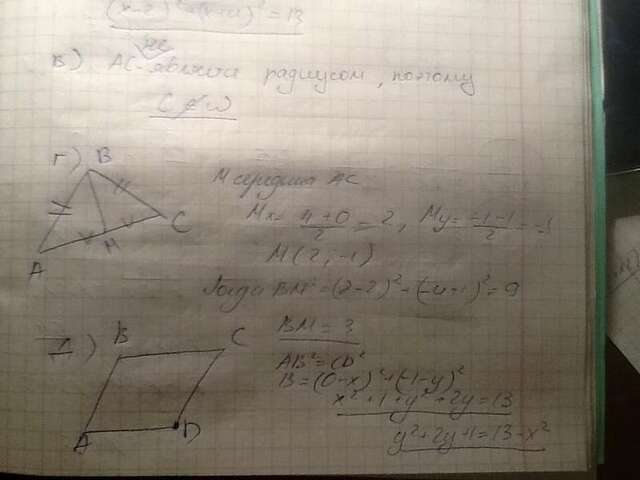 в) АС не является радиусом, поэтому
C ∉ ω
г) B
M середина AC
C
Mx = (4+0)/2 = 2, My = (-1-1)/2 = -1
M
M(2; -1)
A
Тогда BM² = (2-2)² + (-4-1)² = 9
BM = 3
B
C
AB² = CD²
13 = (0-x)² + (-1-y)²
x² + 1 + y² + 2y = 13
A
D
y² + 2y + 1 = 13 - x²